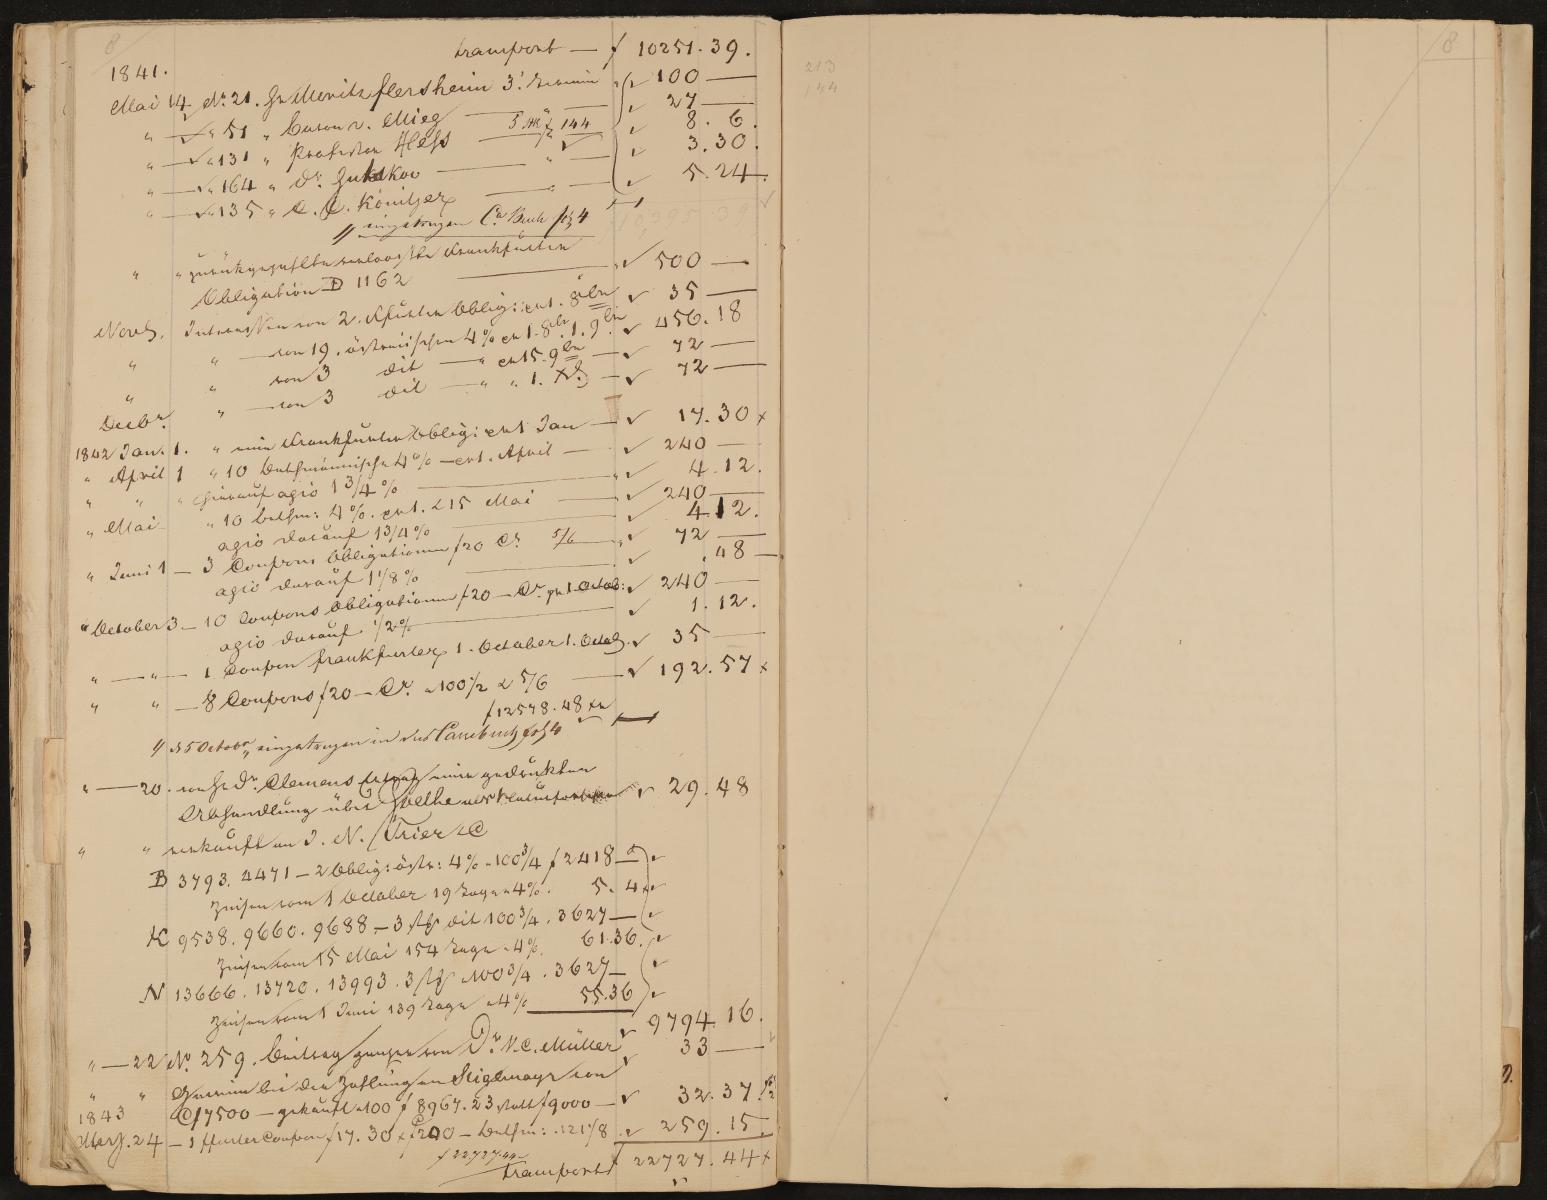 8
Transport — f 10251.39.
1841.
Mai 14 No. 21. Hr Moritz Flersheim 3r Termin 100 —
" — " 51 " Baron v. Mieg — " — 27 —
" — " 131 " Professor Heß 5 Stk f 144 8. 6.
" — " 164 " Dr. Gutzkow — " — 3.30.
" — " 135 " C. C. Könitzer — " — 5.24.
eingetragen Ca Buch fol 4 10,395.39
" " zurückgezahlte verlooste Frankfurter
Obligation D 1162 — 500 —
Novb. Interessen von 2. Kfurter Oblig: per 1. 8br 35 —
" " — von 19. östreichischen 4% pr 1. 8br. 1. 9br 456.18
" " von 3 dit — " pr 15. 9br — 72 —
Decbr. " — von 3 dit — " " 1. Xb — 72 —
1842 Jan. 1. " eine Frankfurter Oblig: pr 1 Jan — 17.30 x
" April 1 " 10 Bethmännische 4% — pr 1. April — 240 —
" " " hierauf agio 1 3/4 % — 4.12.
" Mai " 10 bethm: 4%. pr 1. & 15 Mai — 240 —
agio darauf 1 3/4 % — 4.12.
" Juni 1 — 3 Coupons Obligationen f 20 Cr 5/6 — 72 —
agio darauf 1 1/8 % — .48 —
" October 3 — 10 Coupons Obligationen f 20 — Cr. pr 1 Octob: 240 —
agio darauf 1/2 % — 1.12.
" — " — 1 Coupon Frankfurter 1. October 1. Octob. 35 —
" " — 8 Coupons f 20 — Cr. a 100 1/2 & 5/6 — 192.57 x
f 12578.48 xr
5 October eingetragen in das Cassebuch fol 4
" — 20. von Hr Dr. Clemens Ertrag einer gedruckten
Abhandlung über Goethe als Naturforscher 29.48
" " verkauft an J. N. Trier & C
B 3793. 4471 — 2 Oblig: östr: 4% a 100 3/4 f 2418 —
Zinsen vom 1 October 19 Tage a 4%. 5. 4 x
K 9538. 9660. 9688 — 3 Stk dit 100 3/4. 3627 —
Zinsen vom 15 Mai 154 Tage a 4%. 61.36.
N 13666. 13720. 13993. 3 Stk a 100 3/4. 3627 —
Zinsen vom 1 Juni 139 Tage a 4% 55.36
9794.16.
" — 22 No. 259. Beitrag von Dr. N. C. Müller 33 —
" " Gewinn bei der Zahlung an Stiglmayr von
1843 C f 7500 — gekauft a 100 f 8967.23 statt f 9000 — 32.37.
März. 24 — 1 ffurter Coupon f 17.30 x f 200 — bethm: . 121 1/8 259.15.
f 22727.44
Transport f 22727.44 x
8
213
144